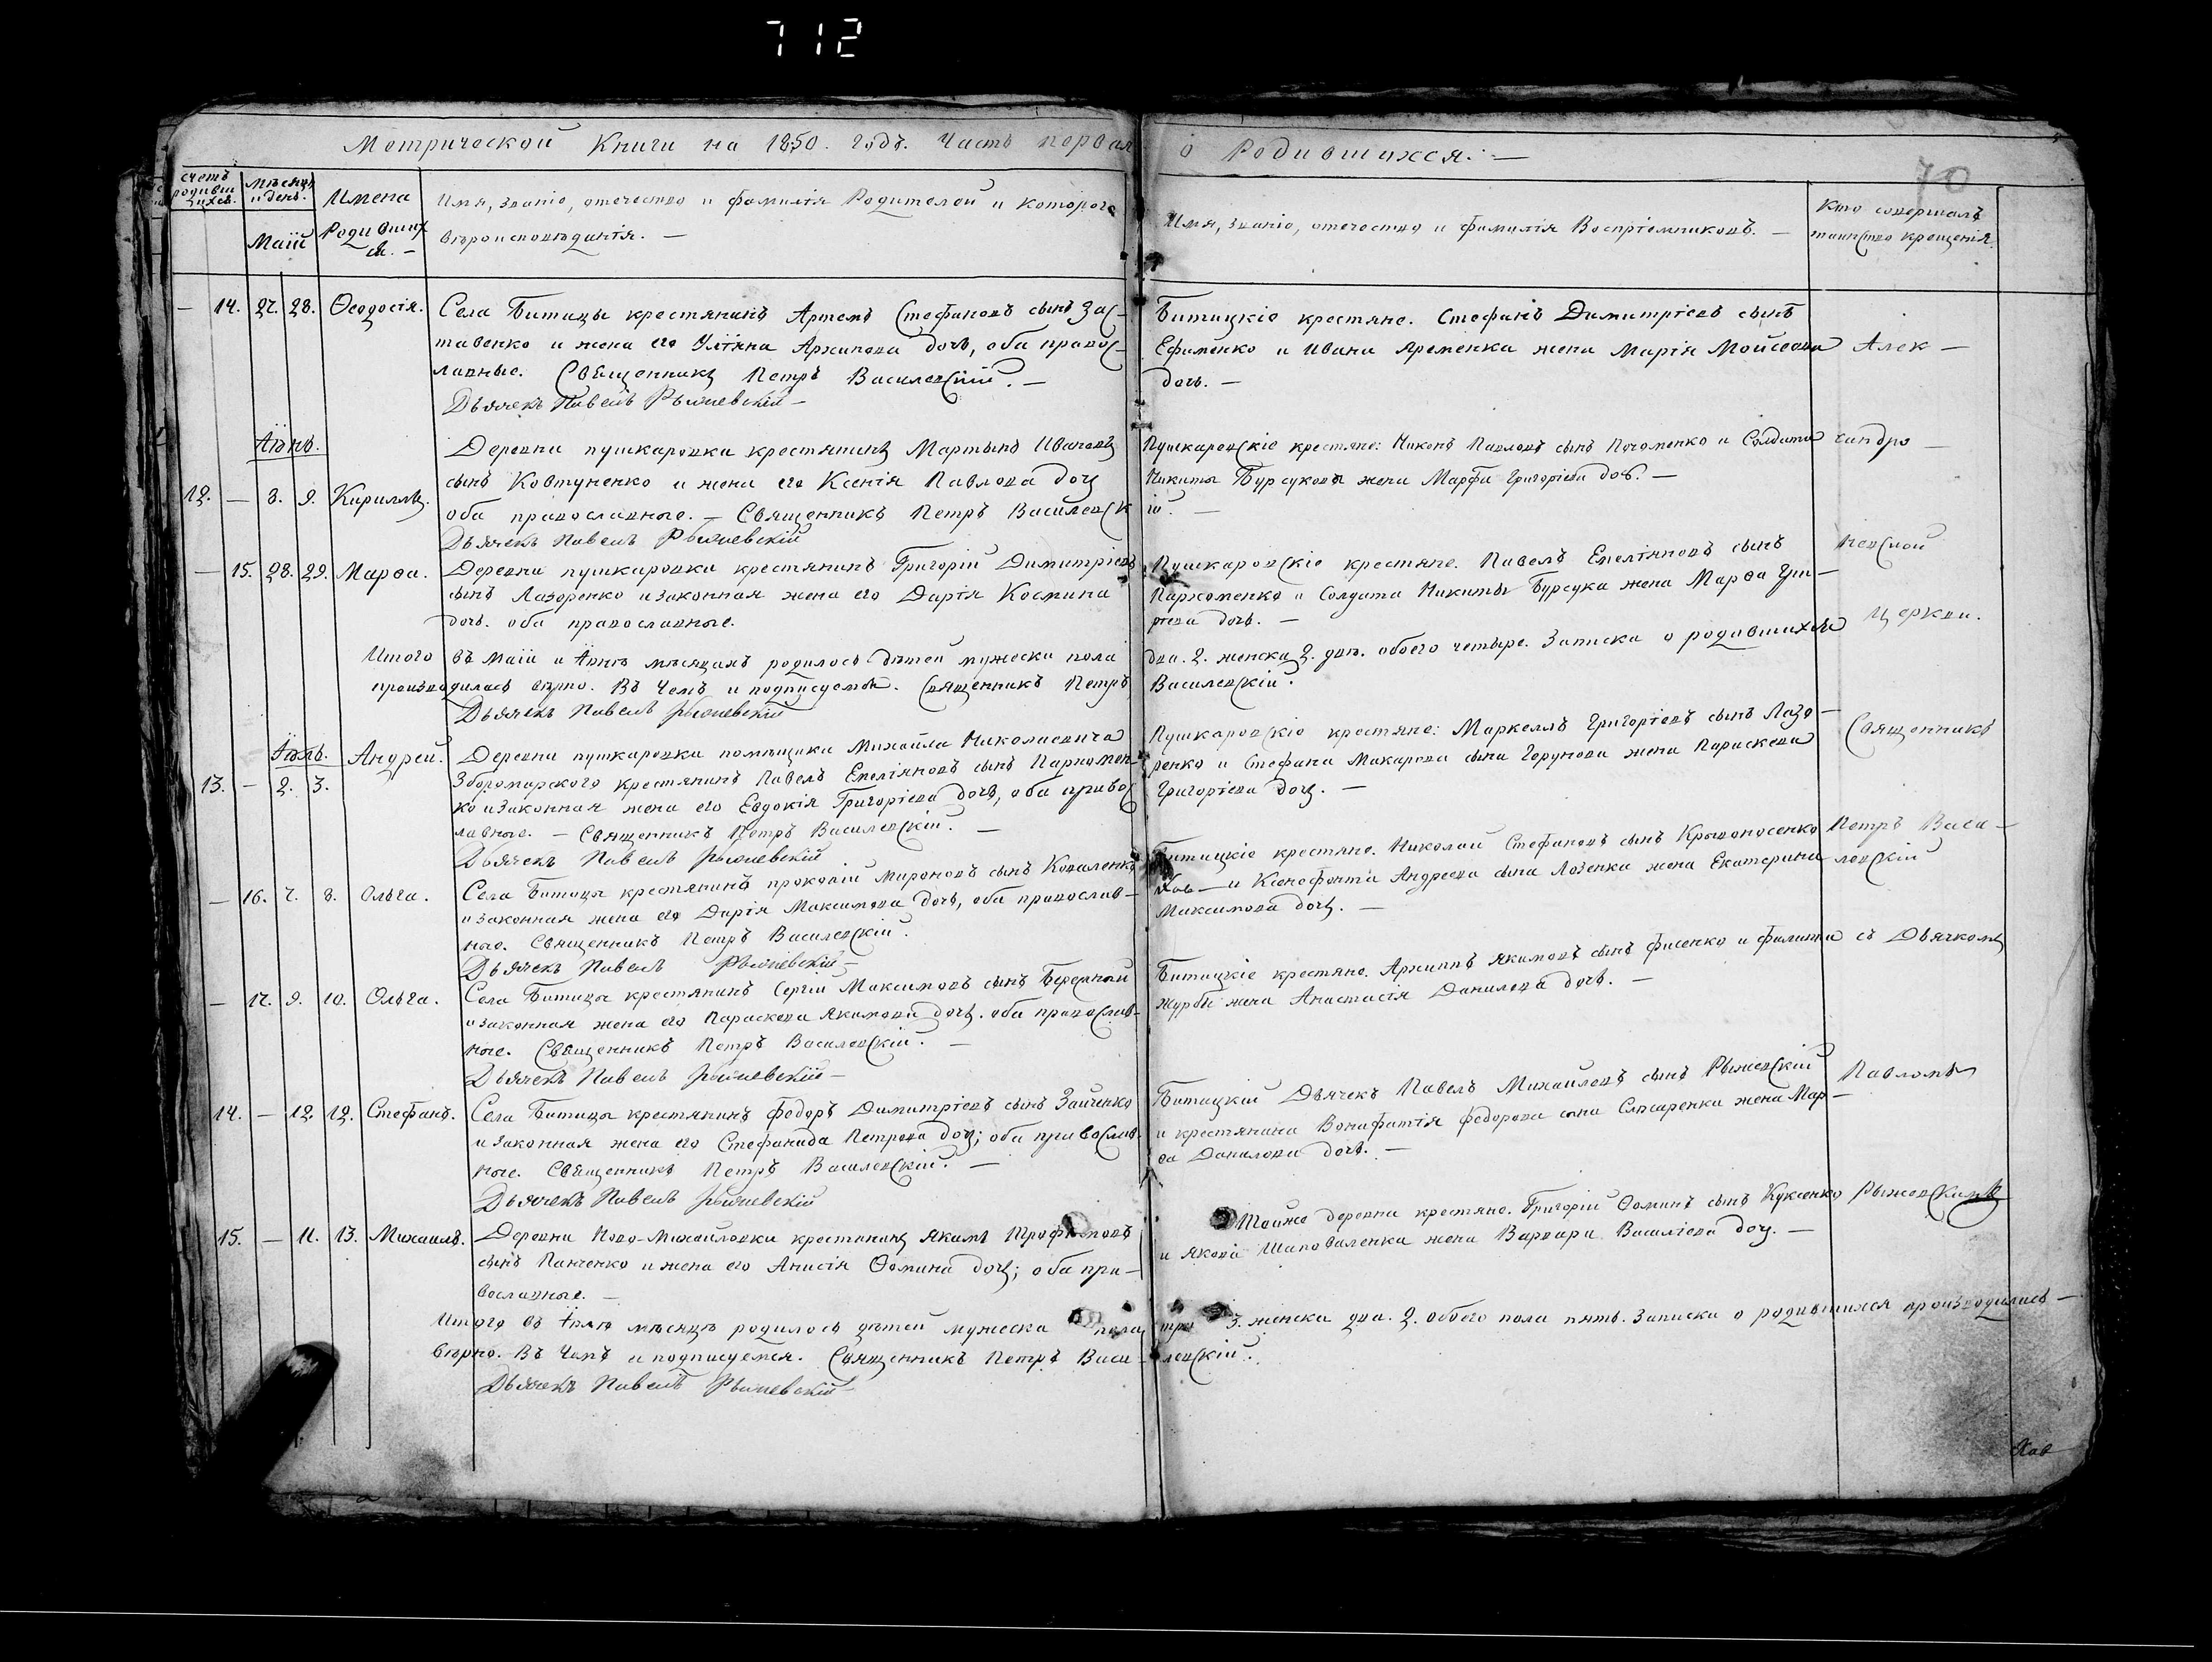 712
Метрической Книги на 1850. годъ. Часть первая о Родившихся. —
70
счетъ родивши хся.
Мѣсяцъ и день.
Маіи
Имена Родивших ся. —
Имя, званіе, отечество и фамилія Родителей и котораго
вѣроисповѣданія. —
Имя, званіе, отечество и фамилія Воспріемниковъ. —
Кто совершалъ
таинство крещенія.
— 14. 27. 28. Ѳеодосія. Села Битицы крестянинъ Артемъ Стефановъ сынъ Зас-
тавенко и жена его Уліяна Архипова дочь, оба правос-
лавные. Священникъ Петръ Василевскій. —
Дьячекъ Павелъ Рыжевскій —
Битицкіе крестяне. Стефанъ Димитріевъ сынъ
Ефименко и Ивана Яременка жена Марія Мойсеова
дочь. —
Алек —
Іюнь.
12. — 8. 9. Кириллъ.
Деревни пушкаровки крестянинъ Мартынъ Ивановъ
сынъ Ковтуненко и жена его Ксенія Павлова дочь
оба православные. — Священникъ Петръ Василевск
Дьячекъ Павелъ Рыжевскій
Пушкаровскіе крестяне: Никонъ Павловъ сынъ Пархоменко и Солдата
Никиты Бурсукова жена Марфа Григоріева дочь. —
ій. —
сандро —
— 15. 28. 29. Марѳа. Деревни пушкаровки крестянинъ Григорій Димитріевъ
сынъ Лазоренко и законная жена его Дарія Космина
дочь. оба православные.
Пушкаровскіе крестяне. Павелъ Емеліяновъ сынъ
Пархоменко и Солдата Никиты Бурсука жена Марѳа Гри —
ріева дочь. —
невской
Церкви.
Итого въ Маіи и Іюнѣ мѣсяцахъ родилось дѣтей мужеска пола
два. 2. женска 2. двѣ. обоего четыре. Записка о родившихся
производилась вѣрно. Въ Чемъ и подписуемся. Священникъ Петръ
Василевскій.
Дьячекъ Павелъ Рыжевскій
Іюль.
13. — 2. 3. Андрей. Деревни пушкаровки помѣщика Михайла Николаевича
Збороморского крестянинъ Павелъ Емеліяновъ сынъ Пархомен-
ко и законная жена его Евдокія Григоріева дочь, оба правос
лавные. — Священникъ Петръ Василевскій. —
Дьячекъ Павелъ Рыжевскій
Пушкаровскіе крестяне: Маркеллъ Григоріевъ сынъ Лазо —
ренко и Стефана Макарова сына Горунова жена Параскева
Григоріева дочь. —
Священникъ
— 16. 7. 8. Ольга. Села Битицы крестянинъ прокопій Мироновъ сынъ Коваленко
и законная жена его Дарія Максимова дочь, оба православ —
ные. Священникъ Петръ Василевскій.
Дьячекъ Павелъ Рыжевскій —
Битицкіе крестяне. Николай Стефановъ сынъ Кривоносенко
и Ксенофонта Андреева сына Лозенка жена Екатерина
Максимова дочь. —
Петръ Васи —
левскій
— 17. 9. 10. Ольга. Села Битицы крестянинъ Сергій Максимовъ сынъ Бересный
и законная жена его Параскева Якимова дочь. оба православ-
ные. Священникъ Петръ Василевскій. —
Дьячекъ Павелъ Рыжевскій —
Битицкіе крестяне. Архиппъ Якимовъ сынъ Фисенко и Филиппа
журбы жена Анастасія Данилова дочь. —
съ Дьячкомъ
14. — 12. 12. Стефанъ. Села Битицы крестянинъ Федоръ Димитріевъ сынъ Зайченко
и законная жена его Стефанида Петрова дочь; оба православ-
ные. Священникъ Петръ Василевскій. —
Дьячекъ Павелъ Рыжевскій
Битицкій Дьячекъ Павелъ Михайловъ сынъ Рыжевскій
и крестянина Вонифатія Федорова сына Слюсаренка жена Мар —
ѳа Данилова дочь. —
Павломъ
15. — 11. 13. Михаилъ. Деревни Ново-Михайловки крестянинъ Якимъ Трофимовъ
сынъ Панченко и жена его Анисія Ѳомина дочь; оба пра —
вославные. —
Тойже деревни крестяне. Григорій Ѳоминъ сынъ Куксенко
и Якова Шаповаленка жена Варвара Василіева дочь. —
Рыжевскимъ
Итого въ Іюлѣ мѣсяцѣ родилось дѣтей мужеска пола
три 3. женска два. 2. обоего пола пять. Записка о родившихся производилась —
вѣрно. Въ Чемъ и подписуемся. Священникъ Петръ Васи —
левскій.
Дьячекъ Павелъ Рыжевскій —